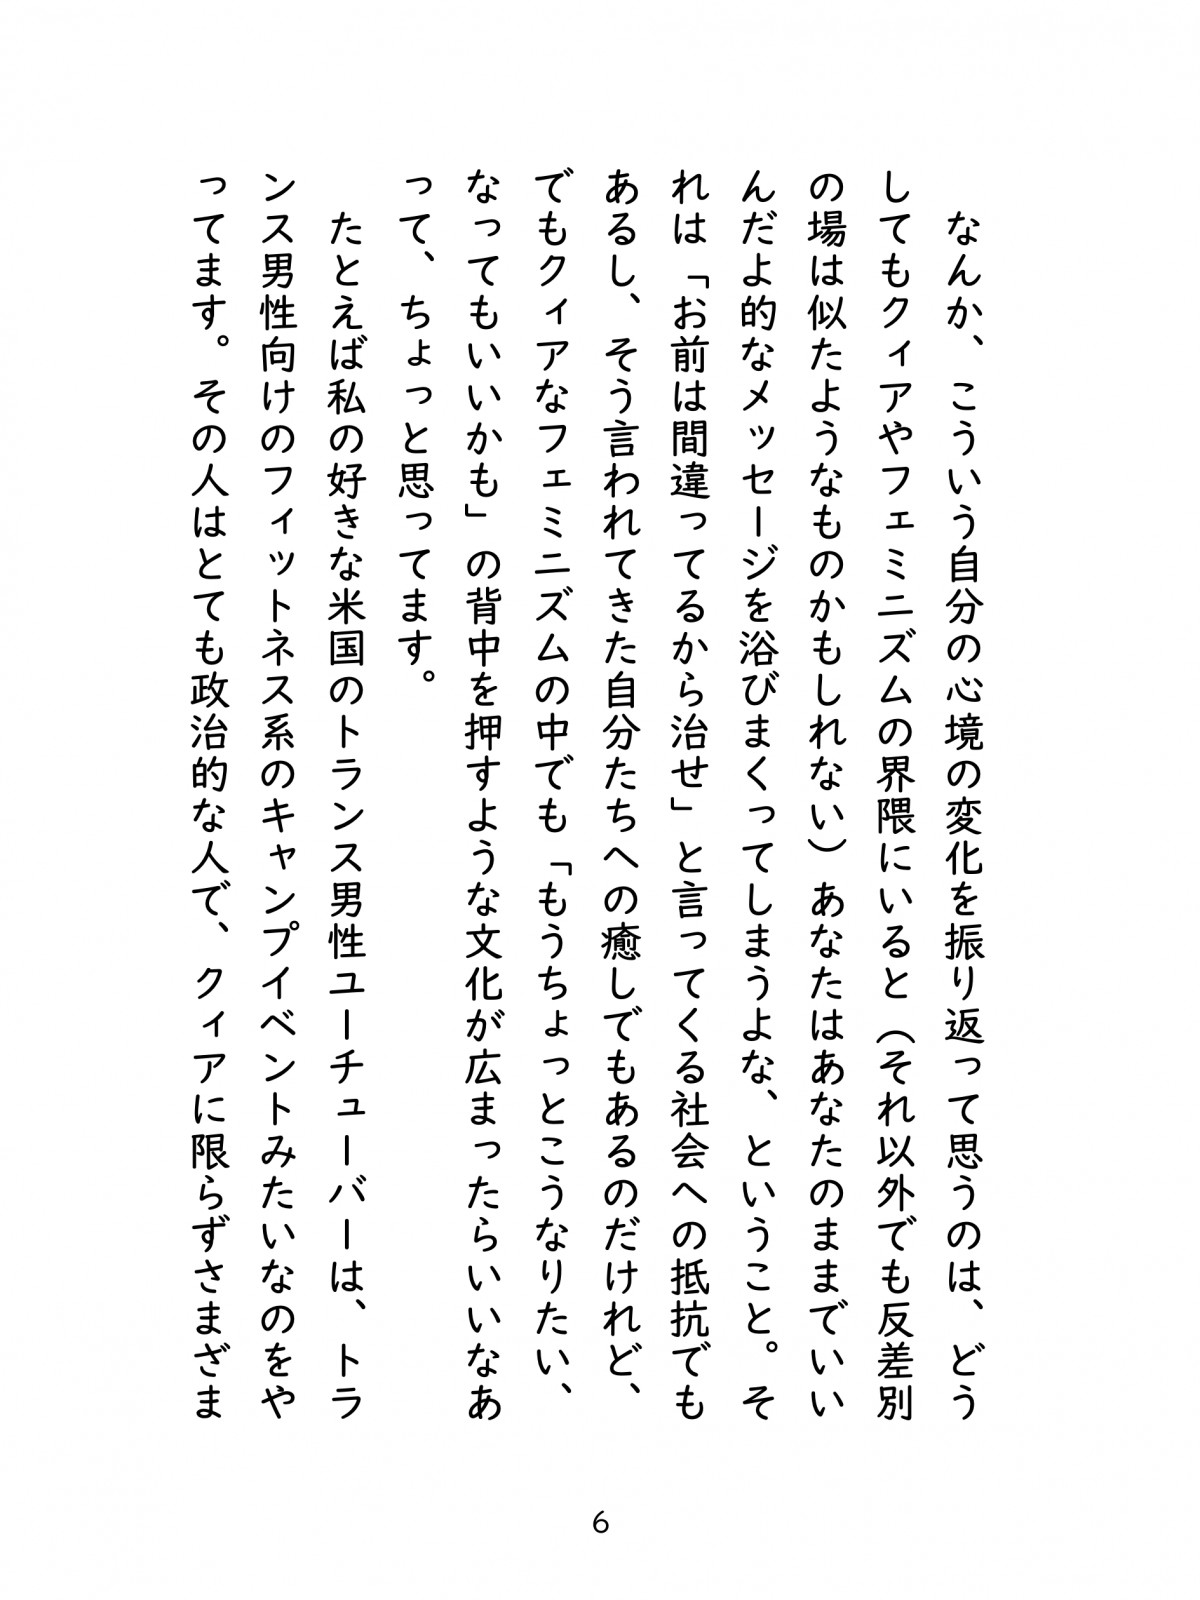 なんか、こういう自分の心境の変化を振り返って思うのは、どう
してもクィアやフェミニズムの界隈にいると（それ以外でも反差別
の場は似たようなものかもしれない）あなたはあなたのままでいい
んだよ的なメッセージを浴びまくってしまうよな、ということ。そ
れは「お前は間違ってるから治せ」と言ってくる社会への抵抗でも
あるし、そう言われてきた自分たちへの癒しでもあるのだけれど、
でもクィアなフェミニズムの中でも「もうちょっとこうなりたい、
なってもいいかも」の背中を押すような文化が広まったらいいなあ
って、ちょっと思ってます。
たとえば私の好きな米国のトランス男性ユーチューバーは、トラ
ンス男性向けのフィットネス系のキャンプイベントみたいなのをや
ってます。その人はとても政治的な人で、クィアに限らずさまざま
6